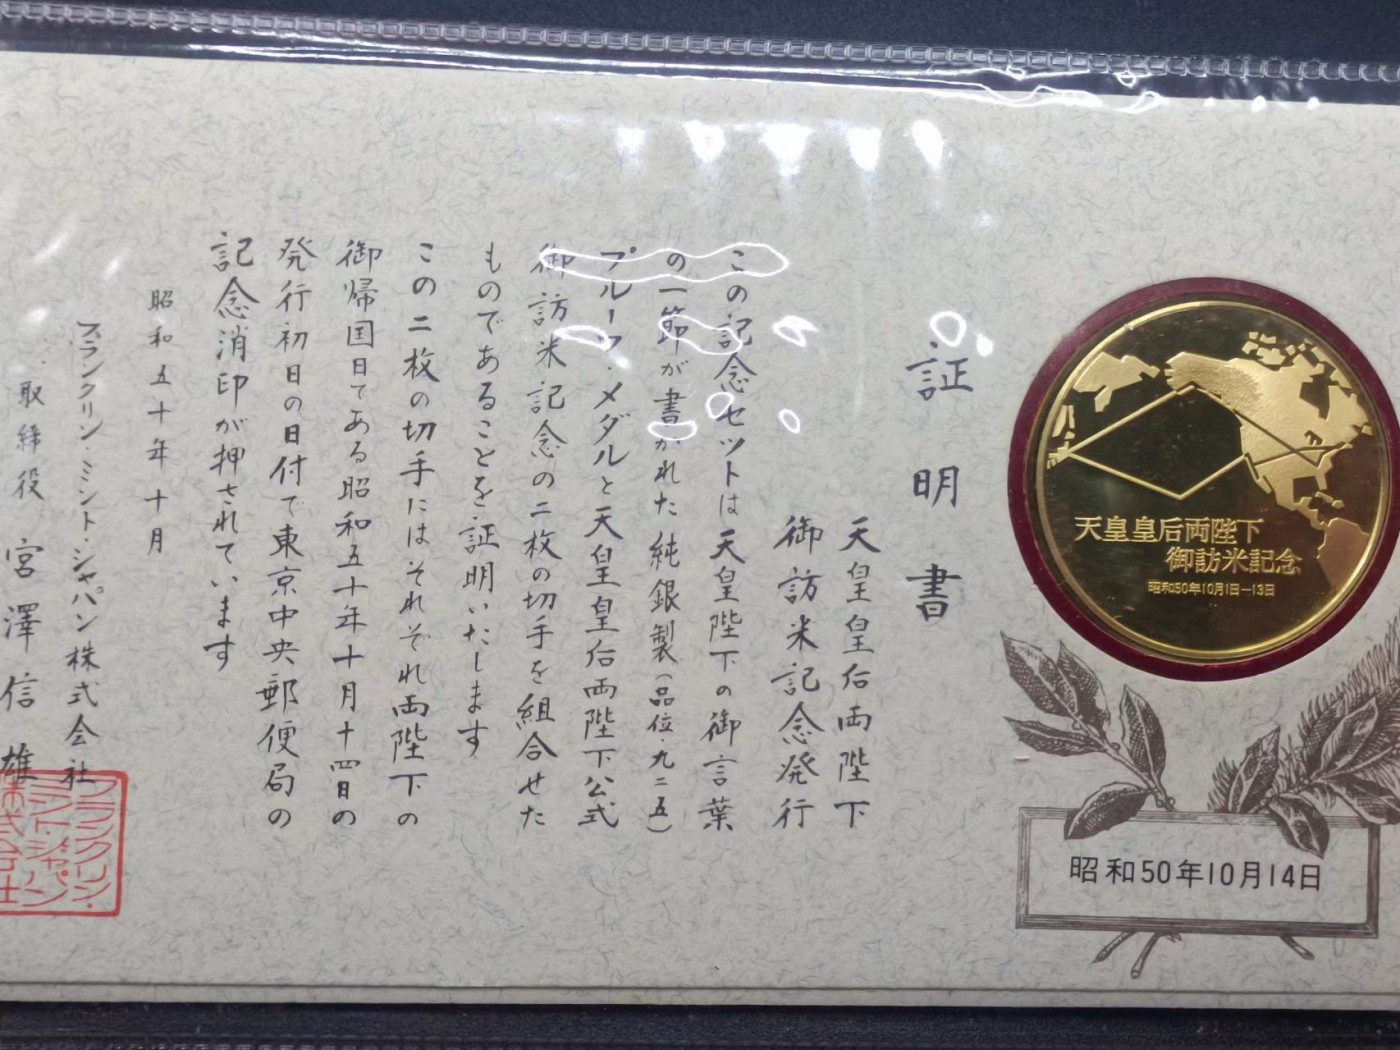 証明書
天皇皇后両陛下
御訪米記念発行
この記念セットは天皇陛下の御言葉
の一節が書かれた純銀製(品位・九二五)
プルーフ・メダルと天皇皇后両陛下公式
御訪米記念の二枚の切手を組合せた
ものであることを証明いたします
この二枚の切手にはそれぞれ両陛下の
御帰国日である昭和五十年十月十四日の
発行初日の日付で東京中央郵便局の
記念消印が押されています
昭和五十年十月
フランクリン・ミント・ジャパン株式会社
取締役 宮澤信雄
フランクリン・
ミントジャパン
株式会社
天皇皇后両陛下
御訪米記念
昭和50年10月1日−13日
昭和50年10月14日